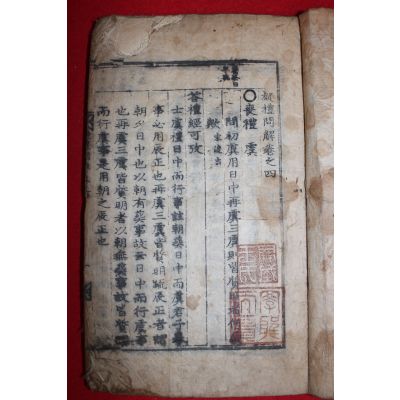 疑禮問解卷之四
○喪禮 虞
問初虞用日中再虞三虞則皆質明
歟 宋浚吉
答禮經可攷
士虞禮日中而行事註朝葬日中而虞君子
事必用辰正也再虞三虞皆質明疏辰正者謂
朝夕日中也以朝有葬事故至日中而行虞事
也再虞三虞皆質明者以朝無葬事故皆質明
而行虞事是用朝之辰正也